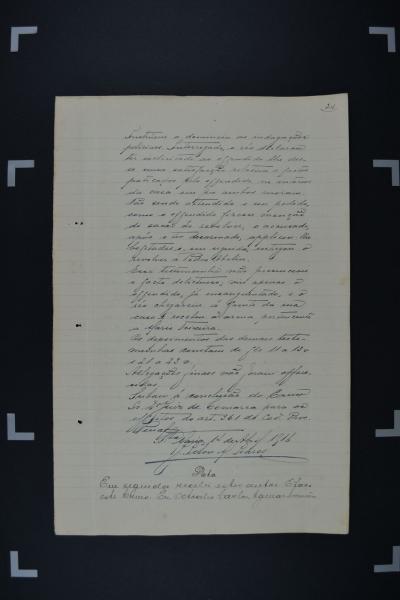 24
Instruem a denuncia as indagações
policiaes. Interrogado, o réo declarou
ter solicitado ao offendido lhe des-
se uma satisfação relativa a factos
praticados pelo offendido no interior
da casa em que ambos moram.
Não sendo attendido o seu pedido,
como o offendido fizesse menção
de sacar do revolver, o accusado,
após o ter desarmado, applicou-lhe
bofetadas e, em seguida, entregou o
revolver a Pedro
Essa testemunha não presenciou
o facto delictuoso, viu apenas o
offendido, já ensanguentado, e o
réo chegarem á frente da sua
casa e recebeu a arma, pertencente
a Mario Teixeira.
Os depoimentos das demais teste-
munhas constam de fls 11 a 13 e
21 a 23 v.
Allegações finaes não foram offere-
cidas.
Subam á conclusão do Exmo
Sr. Dr. Juiz de Comarca para os
effeitos do art. 361 do Cod. Proc.
Penal.
Sta Maria, 1916
Data
Em seguida recebi estes autos. Faço
este termo. Eu